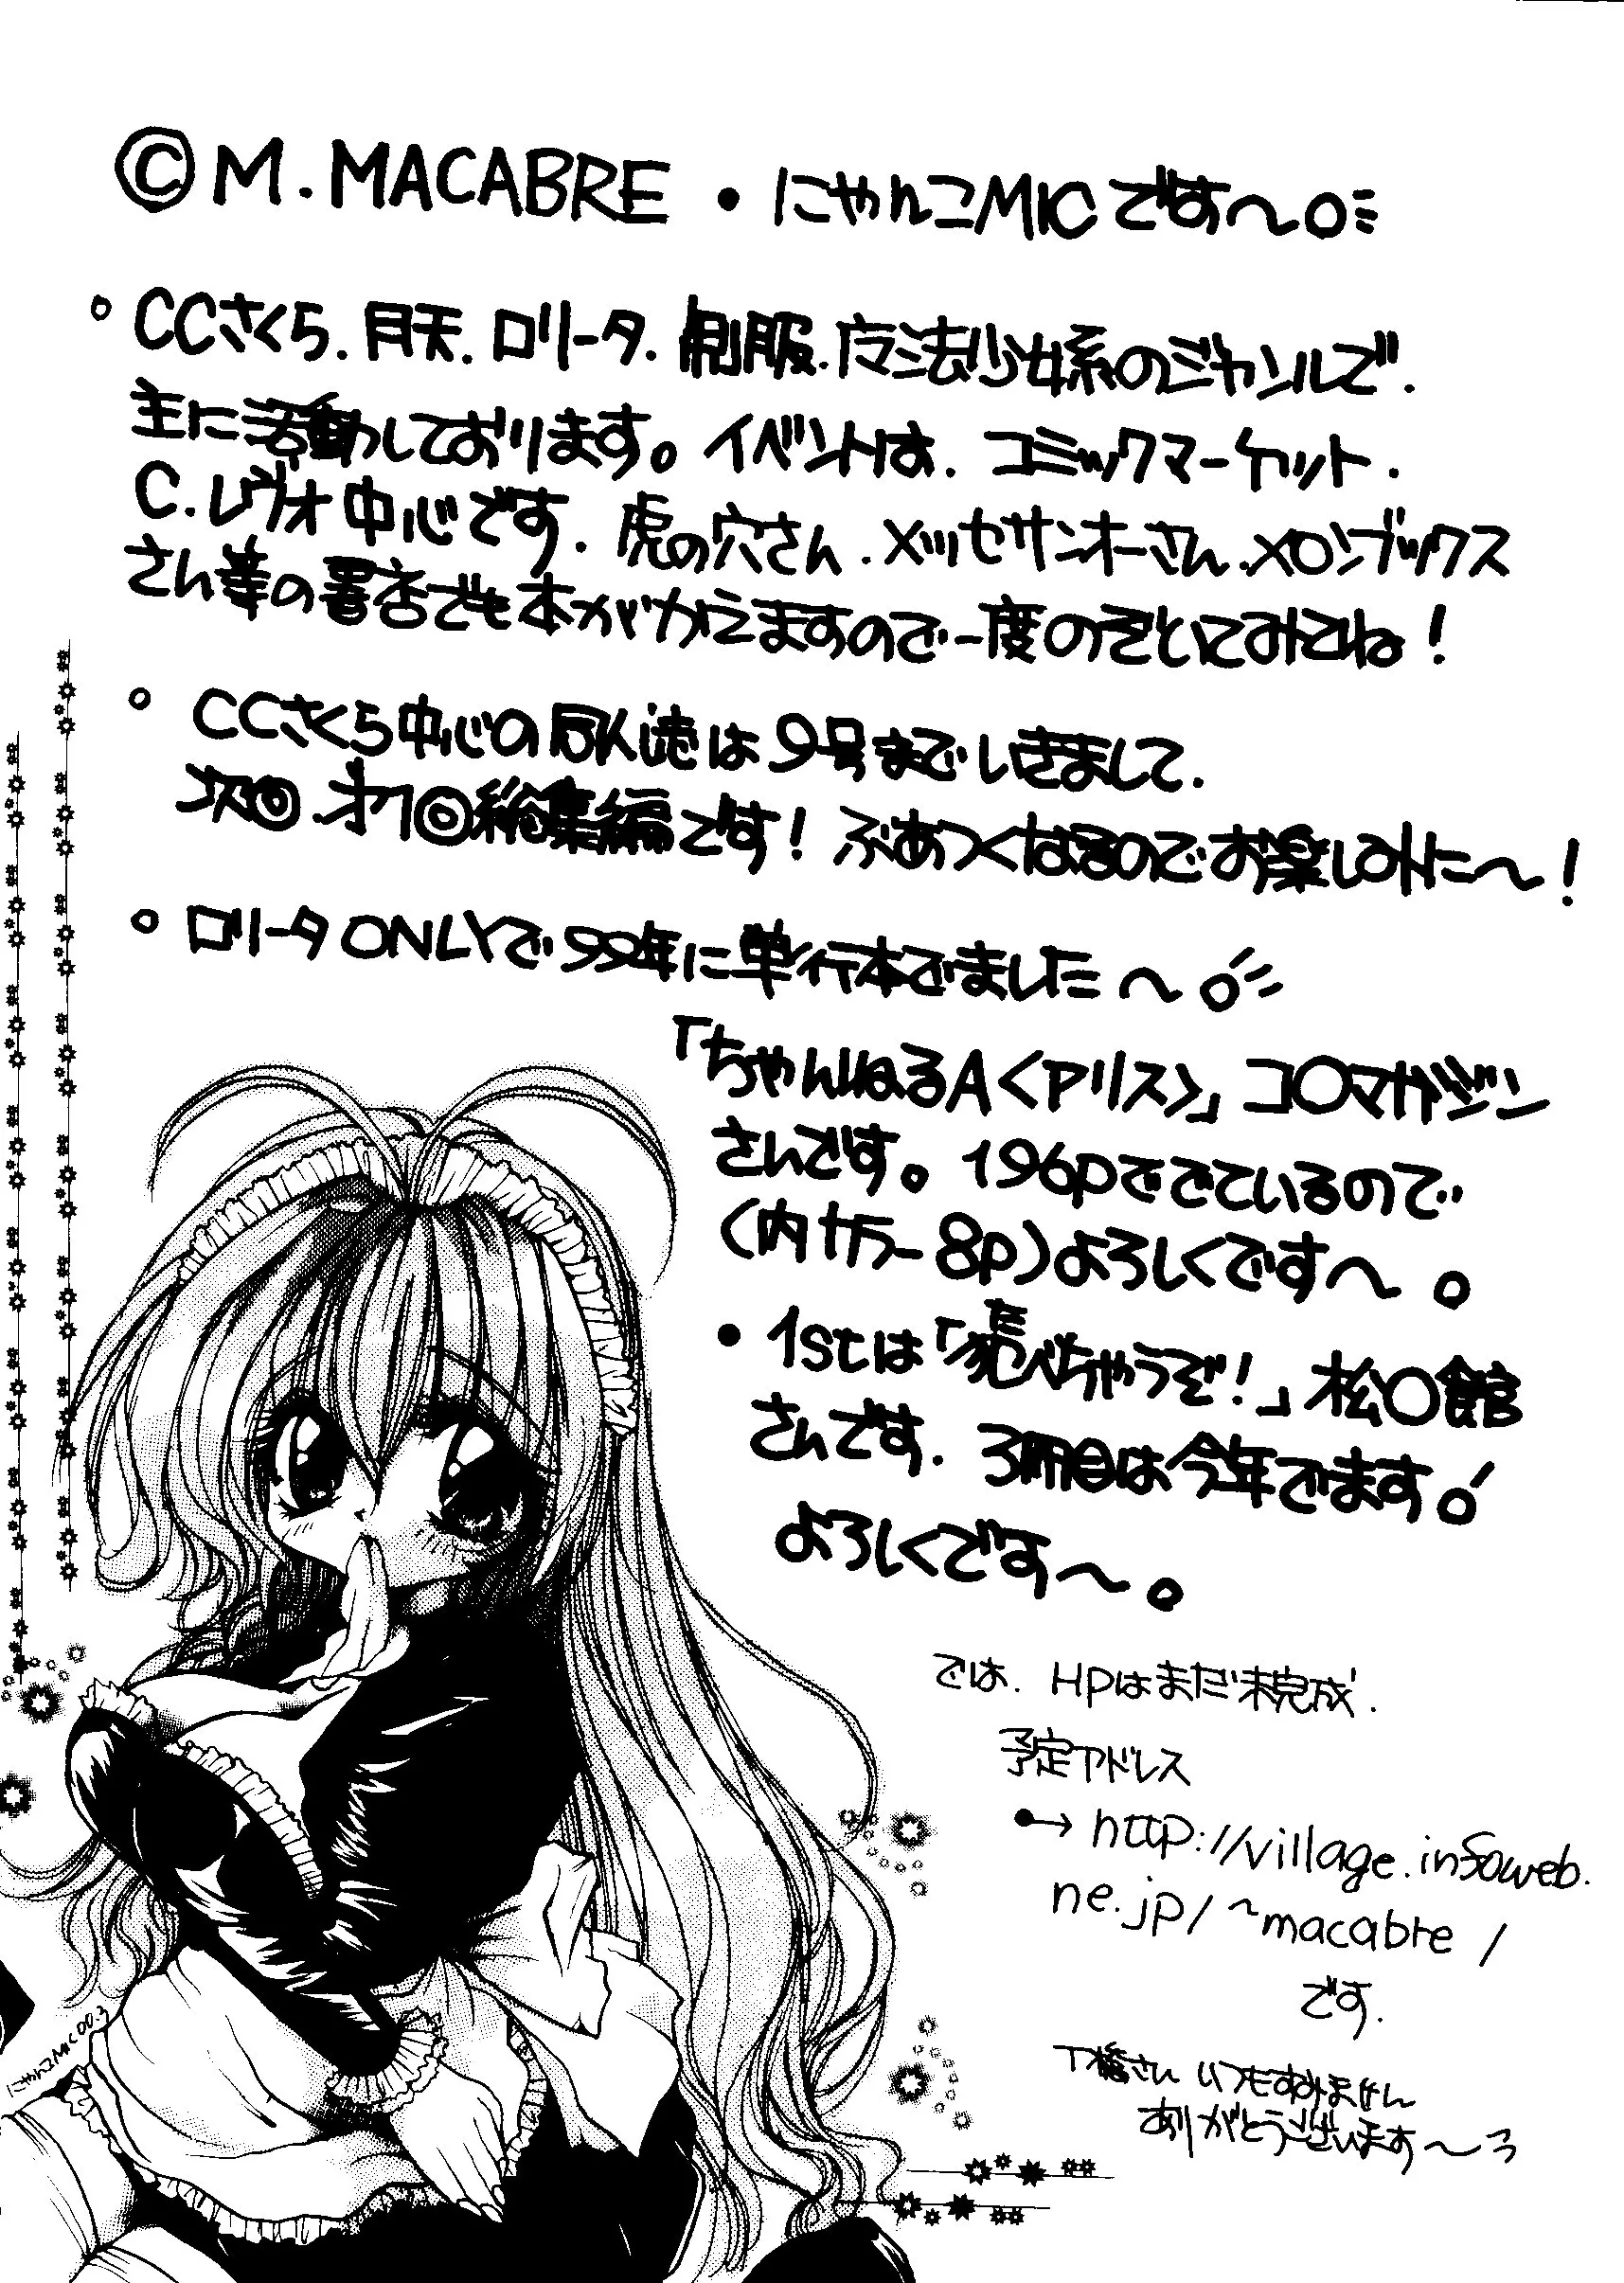 ©M.MACABRE・にゃんこMICです〜○
○ CCさくら.月天.ロリータ.制服.魔法少女系のジャンルで.
主に活動しております。イベントは.コミックマーケット.
C.レヴォ中心です.虎の穴さん.メッセサンオーさん.メロンブックス
さん等の書店でも本がかえますので一度のぞいてみてね！
○ CCさくら中心の同人誌は9号までいきまして.
次回.オフ◎総集編です！ぶあつくなるのでお楽しみに〜！
○ ロリータONLYで99年に単行本でました〜○
「ちゃんねるA〈アリス〉」コ○マガジン
さんです。196pでできているので
(内カラー8p)よろしくです〜。
● 1stは「べちゃうぞ！」松○館
さんです.3冊目は今年でます○
よろしくです〜。
では.HPはまだ未完成.
予定アドレス
●→ http://village.infoweb.
ne.jp/~macabre/
です.
橋さん いつもすみません
ありがとうございます〜
にゃんこMIC 00.3